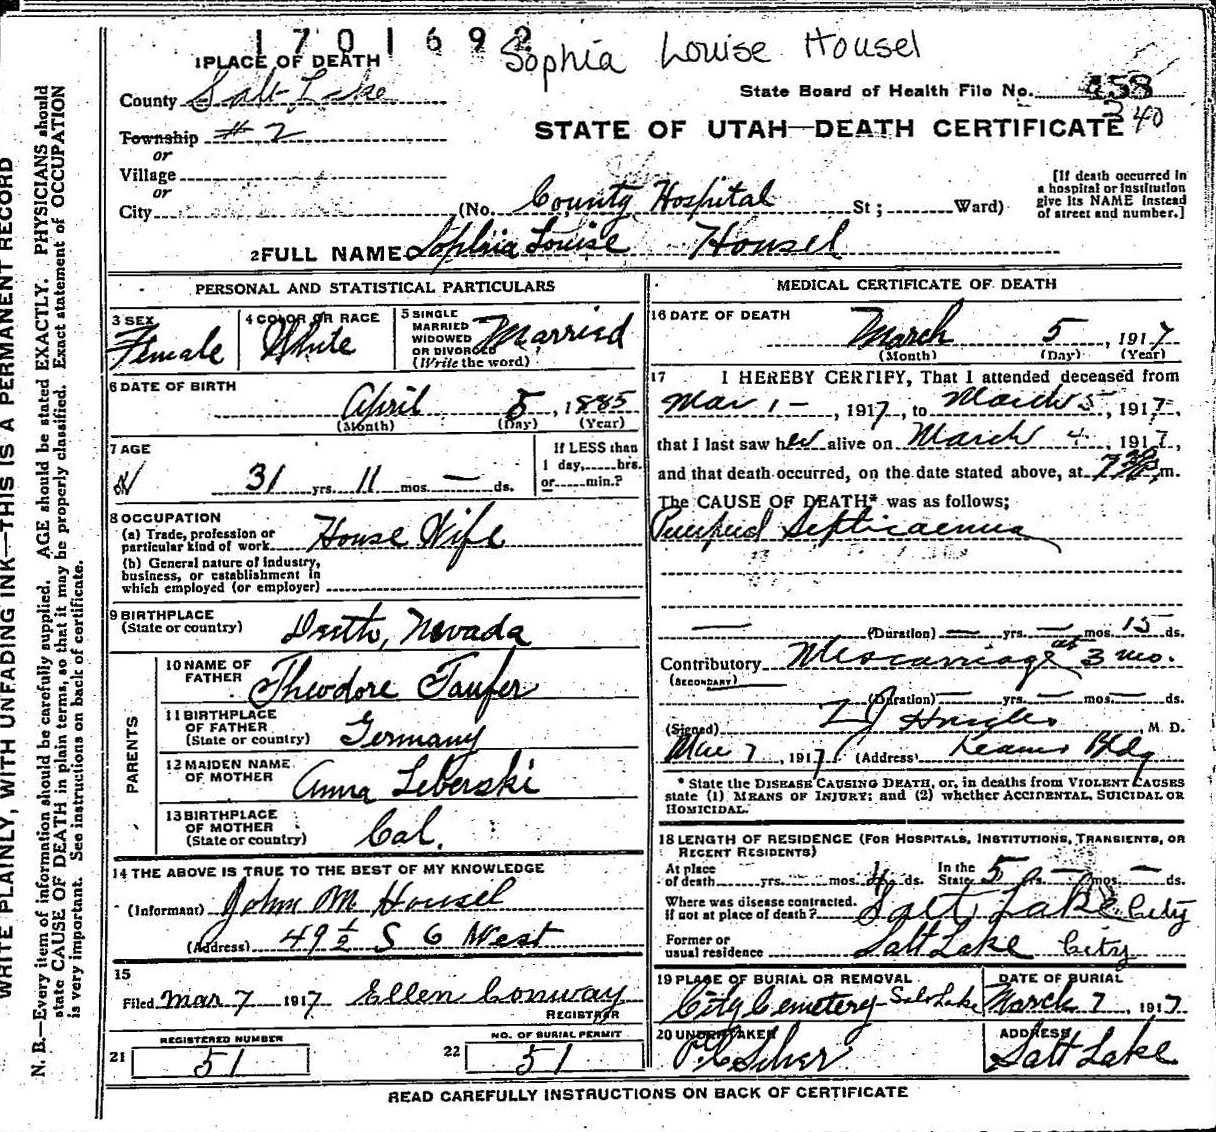 1701692
Sophia Louise Housel
1 PLACE OF DEATH
County Salt Lake
State Board of Health File No. 458
240
Township #2
STATE OF UTAH—DEATH CERTIFICATE
or
Village
or
City (No. County Hospital St; Ward)
[If death occurred in a hospital or institution give its NAME instead of street and number.]
2 FULL NAME Sophia Louise Housel
PERSONAL AND STATISTICAL PARTICULARS
3 SEX
Female
4 COLOR OR RACE
White
5 SINGLE MARRIED WIDOWED OR DIVORCED
(Write the word)
Married
6 DATE OF BIRTH
April 5, 1885
(Month) (Day) (Year)
7 AGE
31 yrs. 11 mos. — ds.
If LESS than
1 day, hrs.
or min.?
8 OCCUPATION
(a) Trade, profession or
particular kind of work House Wife
(b) General nature of industry,
business, or establishment in
which employed (or employer)
9 BIRTHPLACE
(State or country) Deeth, Nevada
PARENTS
10 NAME OF
FATHER Theodore Taufer
11 BIRTHPLACE
OF FATHER
(State or country) Germany
12 MAIDEN NAME
OF MOTHER Anna Leberski
13 BIRTHPLACE
OF MOTHER
(State or country) Cal.
14 THE ABOVE IS TRUE TO THE BEST OF MY KNOWLEDGE
(Informant) John M Housel
(Address) 49 ½ S 6 West
15
Filed Mar 7 1917 Ellen Conway
REGISTRAR
21 REGISTERED NUMBER
51
22 NO. OF BURIAL PERMIT
51
MEDICAL CERTIFICATE OF DEATH
16 DATE OF DEATH
March 5, 1917
(Month) (Day) (Year)
17 I HEREBY CERTIFY, That I attended deceased from
Mar 1 —, 1917, to March 5, 1917,
that I last saw her alive on March 4, 1917,
and that death occurred, on the date stated above, at 7 30 P m.
The CAUSE OF DEATH* was as follows:
Puerperal Septicaemia
(Duration) — yrs. — mos. 15 ds.
Contributory Miscarriage at 3 mo.
(SECONDARY)
(Duration) — yrs. — mos. — ds.
(Signed) M. D.
Mar 7, 1917 (Address) Bldg
* State the DISEASE CAUSING DEATH, or, in deaths from VIOLENT CAUSES
state (1) MEANS OF INJURY; and (2) whether ACCIDENTAL, SUICIDAL OR
HOMICIDAL.
18 LENGTH OF RESIDENCE (FOR HOSPITALS, INSTITUTIONS, TRANSIENTS, OR
RECENT RESIDENTS)
At place
of death yrs. mos. 4 ds. In the State 5 yrs. — mos. — ds.
Where was disease contracted.
if not at place of death? Salt Lake City
Former or
usual residence Salt Lake City
19 PLACE OF BURIAL OR REMOVAL
City Cemetery Salt Lake
DATE OF BURIAL
March 7, 1917
20 UNDERTAKER
ADDRESS
Salt Lake
READ CAREFULLY INSTRUCTIONS ON BACK OF CERTIFICATE
WRITE PLAINLY, WITH UNFADING INK—THIS IS A PERMANENT RECORD
N. B.—Every item of information should be carefully supplied. AGE should be stated EXACTLY. PHYSICIANS should
state CAUSE OF DEATH in plain terms, so that it may be properly classified. Exact statement of OCCUPATION
is very important. See instructions on back of certificate.